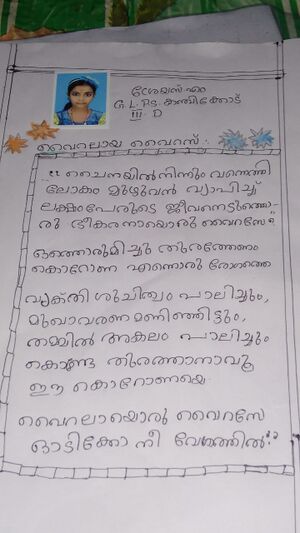 ശ്രേയസ് എം
G.L.P.S. കഞ്ചിക്കോട്
III D
വൈറലായ വൈറസ് :
" ചൈനയിൽനിന്നും വന്നെത്തി
ലോകം മുഴുവൻ വ്യാപിച്ച്
ലക്ഷംപേരുടെ ജീവനെടുത്തൊ-
രു ഭീകരനായൊരു വൈറസേ
ഒത്തൊരുമിച്ചു തുരത്തേണം
കൊറോണ എന്നൊരു രോഗത്തെ
വ്യക്തി ശുചിത്വം പാലിച്ചും,
മുഖാവരണമണിഞ്ഞിട്ടും,
തമ്മിൽ അകലം പാലിച്ചും
കൊണ്ടേ തുരത്താനാവൂ
ഈ കൊറോണയെ
വൈറലായൊരു വൈറസേ
ഓടിക്കോ നീ വേഗത്തിൽ "